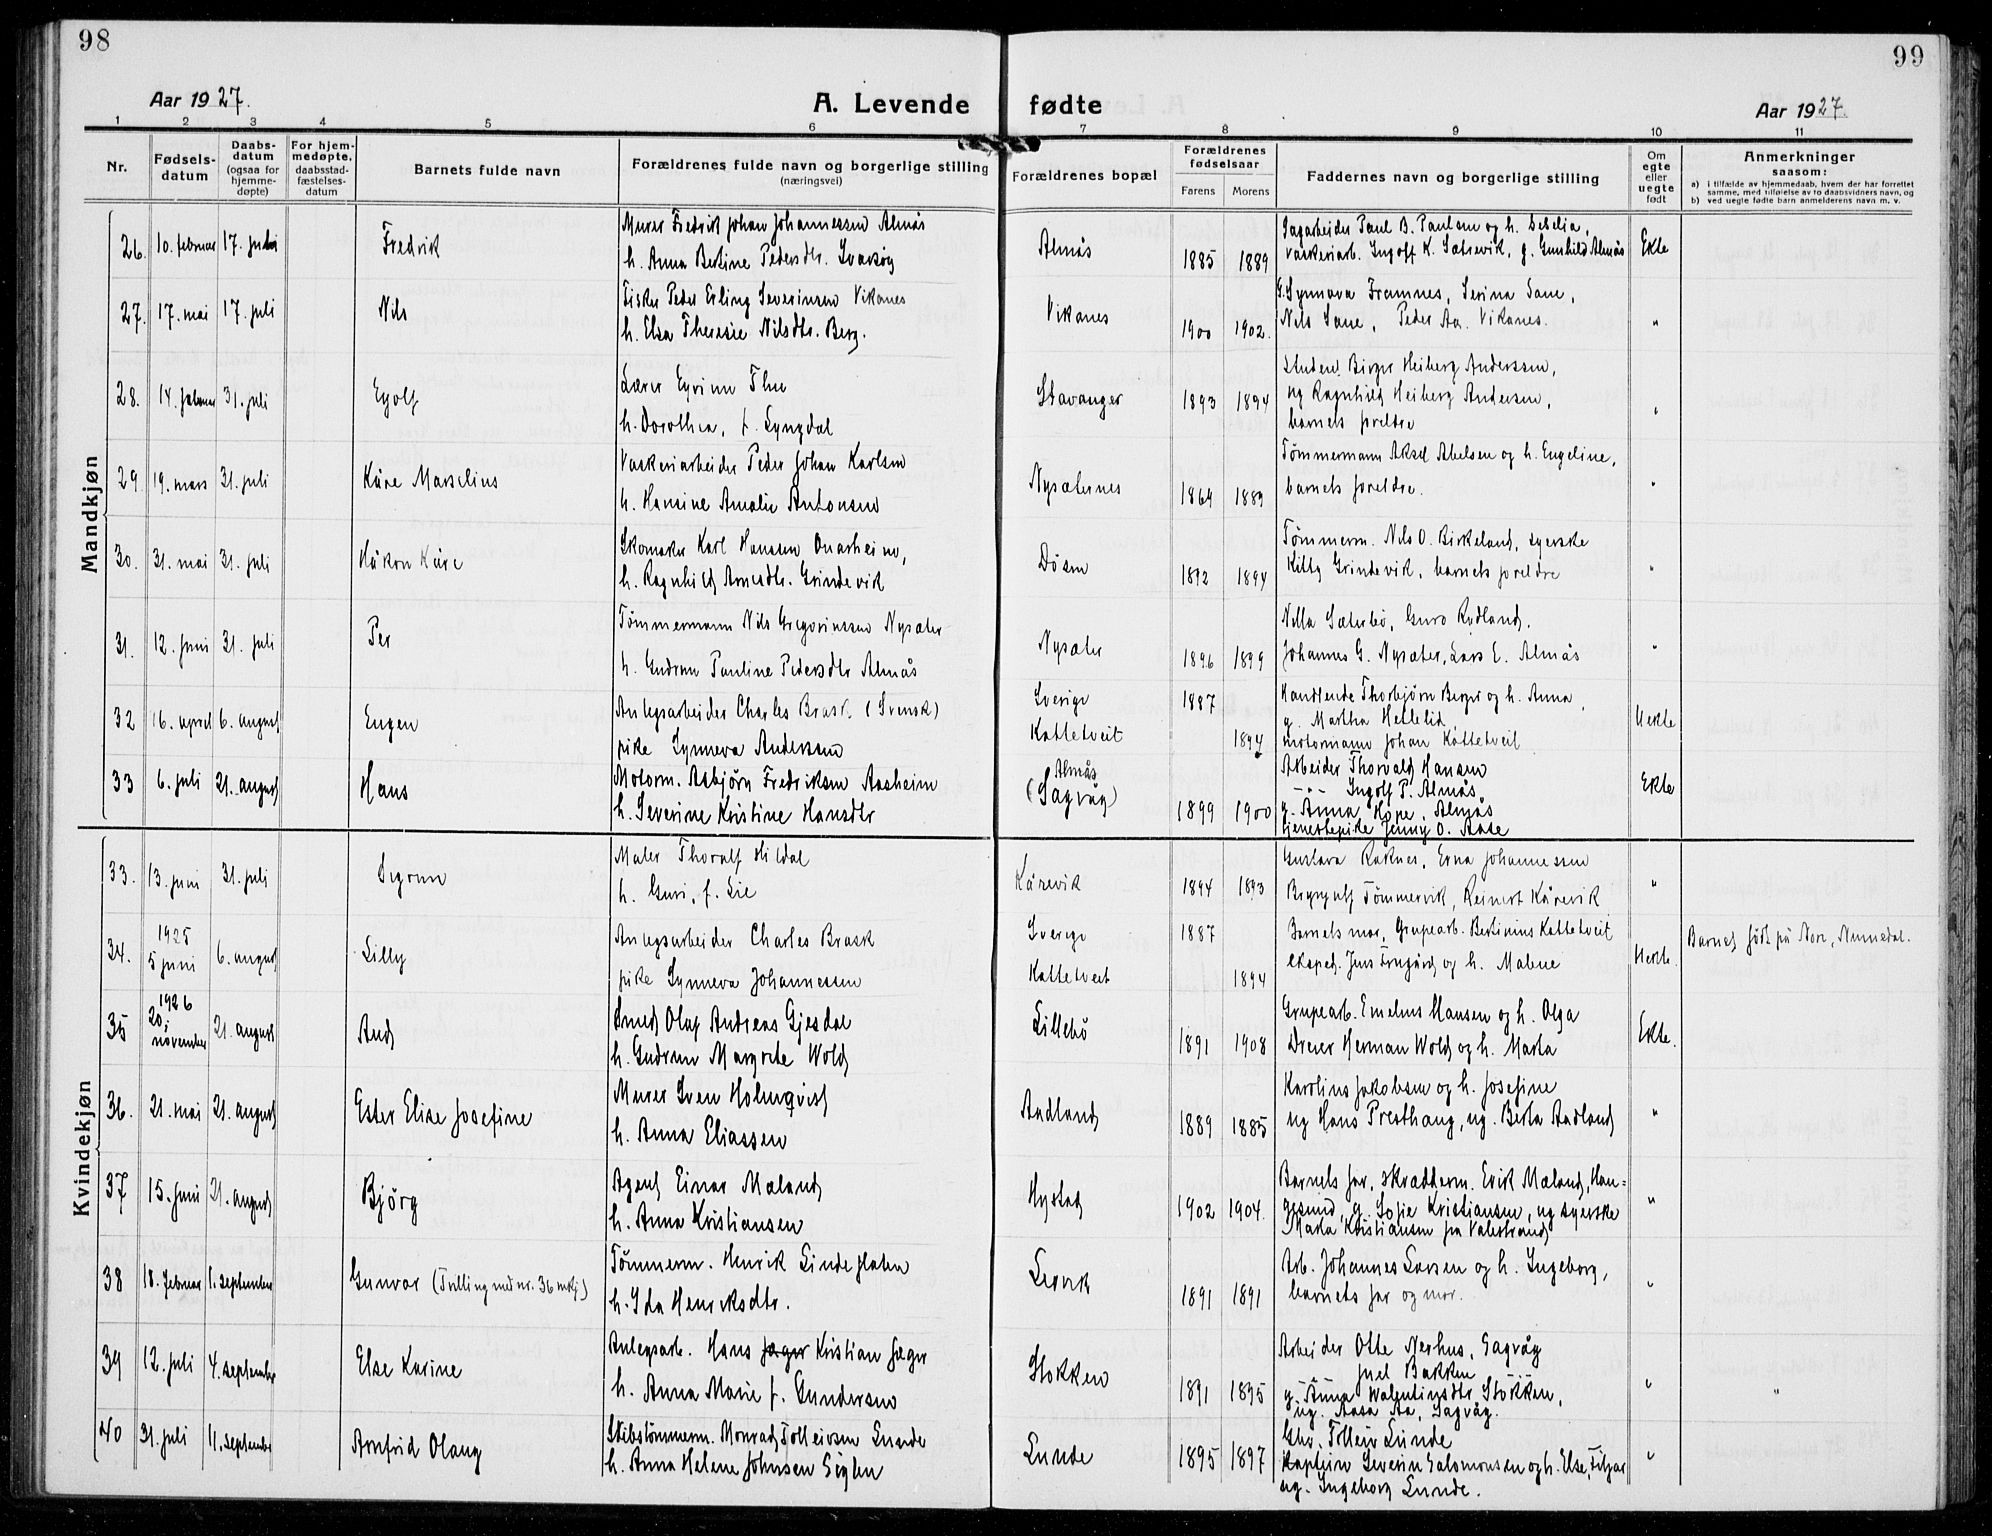 98
99
Aar 1927.
A. Levende fødte
Aar 1927.
1 2 3 4 5 6 7 8 9 10 11
Nr.
Fødselsdatum
Daabsdatum (ogsaa for hjemmedøpte)
For hjemmedøpte, daabsstadfæstelsesdatum
Barnets fulde navn
Forældrenes fulde navn og borgerlige stilling (næringsvei)
Forældrenes bopæl
Forældrenes fødselsaar
Farens Morens
Faddernes navn og borgerlige stilling
Om egte eller uegte født
Anmerkninger saasom:
a) i tilfælde av hjemmedaab, hvem der har forrettet samme, med tilføielse av to daabsvidners navn, og
b) ved uegte fødte barn anmelderens navn m. v.
Mandkjøn
26. 10. februar 17. juli Fredrik
Murer Fredrik Johan Johannessen Almås
h. Anna Bertine Pedersdtr. Svarsøy
Almås 1885 1889
Sagarbeider Paul B. Paulsen og h. Deselia,
Vaskeriarb. Ingolf K. Sætrevik, g. Gunhild Almås
Ekte
27. 17. mai 17. juli Nils
Fisker Peder Erling Severinsen Vikanes
h. Elsa Theresie Nilsdtr. Berg.
Vikanes 1900 1902.
G. Synnøva Framnes, Serina Sane,
Nils Sane, Peder Aa. Vikanes.
"
28. 14. februar 31. juli Egolf
Lærer Eyvinn Thu
h. Dorothea, f. Lyngdal
Stavanger 1893 1894
Student Birger Heiberg Anderssen,
ug Ragnhild Heiberg Andersen,
barnets foreldre
"
29. 19. mars 31. juli Kåre Marselius
Vaskeriarbeider Peder Johan Karlsen
h. Hansine Amalie Antonsen
Nysæternes 1864 1883
Tømmermann Aksel Abelsen og h. Engeline,
barnets foreldre.
"
30. 31. mai 31. juli Håkon Kåre
Skomaker Karl Hansen Onarheim,
h. Ragnhild Arnesdtr. Grindevik
Døsen 1892 1894
Tømmerm. Nils O. Birkeland, syerske
Kitty Grindevik, barnets foreldre
"
31. 12. juni 31. juli Per
Tømmermann Nils Gregoriussen Nysæter
h. Gudrun Pauline Pedersdtr Almås
Nysæter 1896 1899
Nilla Sæterbø, Guro Rydland.
Johannes G. Nysæter, Lars E. Almås
"
32 16. april 6. august Eugen
Anlegsarbeider Charles Brask (Svensk)
pike Synneva Anderssen
Sverige 1887
Kattetveit 1894
Handlende Thorbjørn Berger og h. Anna,
g. Martha Hettelid,
motormann Johan Kattetveit
Uekte
33 6. juli 21. august Hans
Motorm. Asbjørn Fredriksen Aasheim
h. Severine Kristine Hansdtr
Almås
(Sagvåg) 1899 1900
Arbeider Thorvald Hansen
" Ingolf P. Almås,
g. Anna Hope, Almås
tjenestepike Jenny O. Aase
Ekte
Kvindekjøn
33. 13. juni 31. juli Sigrun
Maler Thoralf Hildal
h. Guri, f. Lie
Kårevik 1894 1893
Gustava Raknes, Erna Johannessen
Brynjulf Tømmervik, Reinert Kårevik
"
34. 1925 5 juni 6. august Lilly
Anlegsarbeider Charles Brask
pike Synneva Johannessen
Sverige 1887
Kattetveit 1894
Barnets mor, Grupearb. Bertinius Kattetveit
eksped. Jens Trngård og h. Malene
Uekte.
Barnet født på Nore, Numedal.
35 1926 20. november 21. august Aud
Smed Olaf Andreas Gjesdal
h. Gudrun Margrete Wold
Lillebø 1891 1908
Grupearb. Emelius Hansen og h. Olga
Dreier Herman Wold og h. Marta
Ekte.
36. 21. mai 21. august Ester Elise Josefine
Murer Sven Holmqvist
h. Anna Eliassen
Aadland 1889 1885
Karolius Jakobsen og h. Josefine
ug Hans Presthaug, ug. Berta Aadland
"
37 15. juni 21. august Bjørg
Agent Einar Mæland
h. Anna Kristiansen
Hystad 1902 1904.
Barnets far, skrædderm. Erik Mæland, Haugesund, g. Sofie Kristiansen, ug syerske
Marta Kristiansen fra Valestrand
"
38 18. februar 1. september Gunvor (Tvilling med nr. 36 mkj.)
Tømmerm. Henrik Lindeflaten
h. Ida Henriksdtr.
Lervik 1891 1891
Arb. Johannes Larsen og h. Ingeborg,
barnets far og mor.
"
39 12. juli 4. september Else Karine
Anlegsarb. Hans Jæger Kristian Jæger
h. Anna Marie f. Gundersen
Stokken 1891 1895
Arbeider Otte Nerhus, Sagvåg
Juel Bakken
g. Anna Valentinsdtr Stokken,
ug. Aasa Aa, Sagvåg.
" "
40 31. juli 11. september Arnfrid Olaug
Skibstømmerm. Monrad Tolleivsen Lunde
h. Anna Helene Johnsen Siglen
Lunde 1895 1897
Gbr. Tolleiv Lunde
Kaptein Severin Salomonsen og h. Else, Fitjar
ug. Ingeborg Lunde.
"